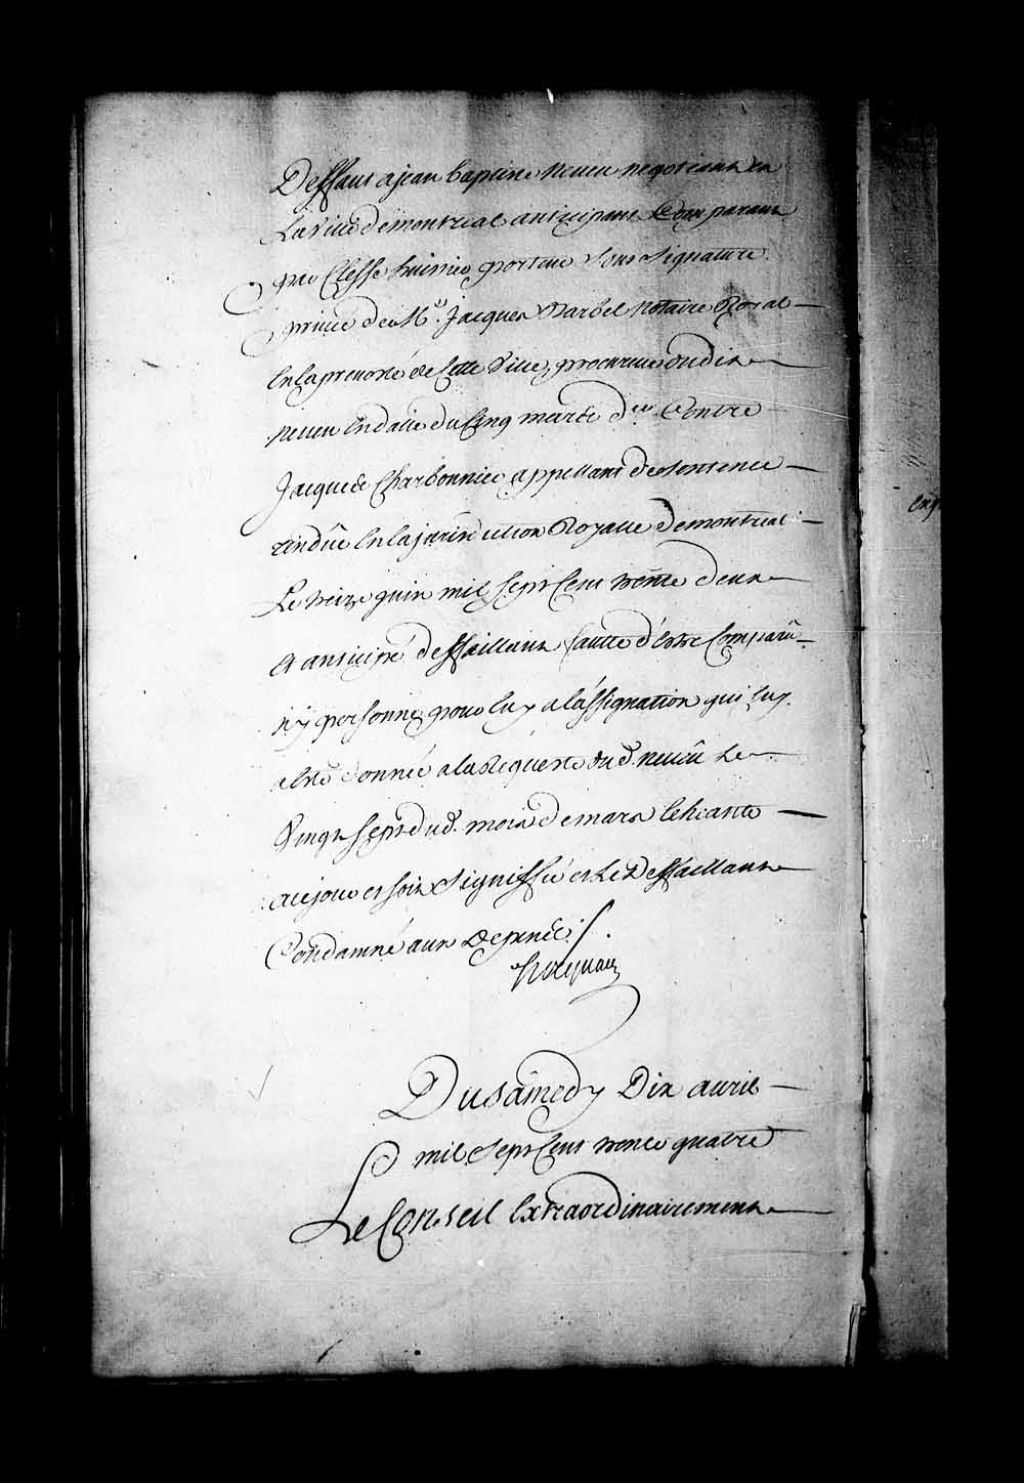 Deffaut a jean baptiste neveu negotiant en
La Ville de montreal anticipant Comparant
par Clesse huissier porteur sous signature
privée de Me. Jacques Barbel notaire Royal
En la prevosté de Cette Ville, procureur dudit
neveu En datte du Cinq mars der. Contre
Jacques Charbonnier appellant de sentence
rendüe En la jurisdiction Royalle de montreal
Le treize juin mil sept Cent trente deux
et anticipé deffaillant faute d'estre Comparu
n'y personne pour luy a l'assignation qui luy
a esté donnée a la Requeste dud. neveu Le
Vingt sept dud. mois de mars Echeante
a ce jour et soit signiffié et Le Deffaillant
Condamné aux Depens ./.
hocquart
Du samedy Dix avril
mil sept Cent trente quatre
Le Conseil Extraordinairement